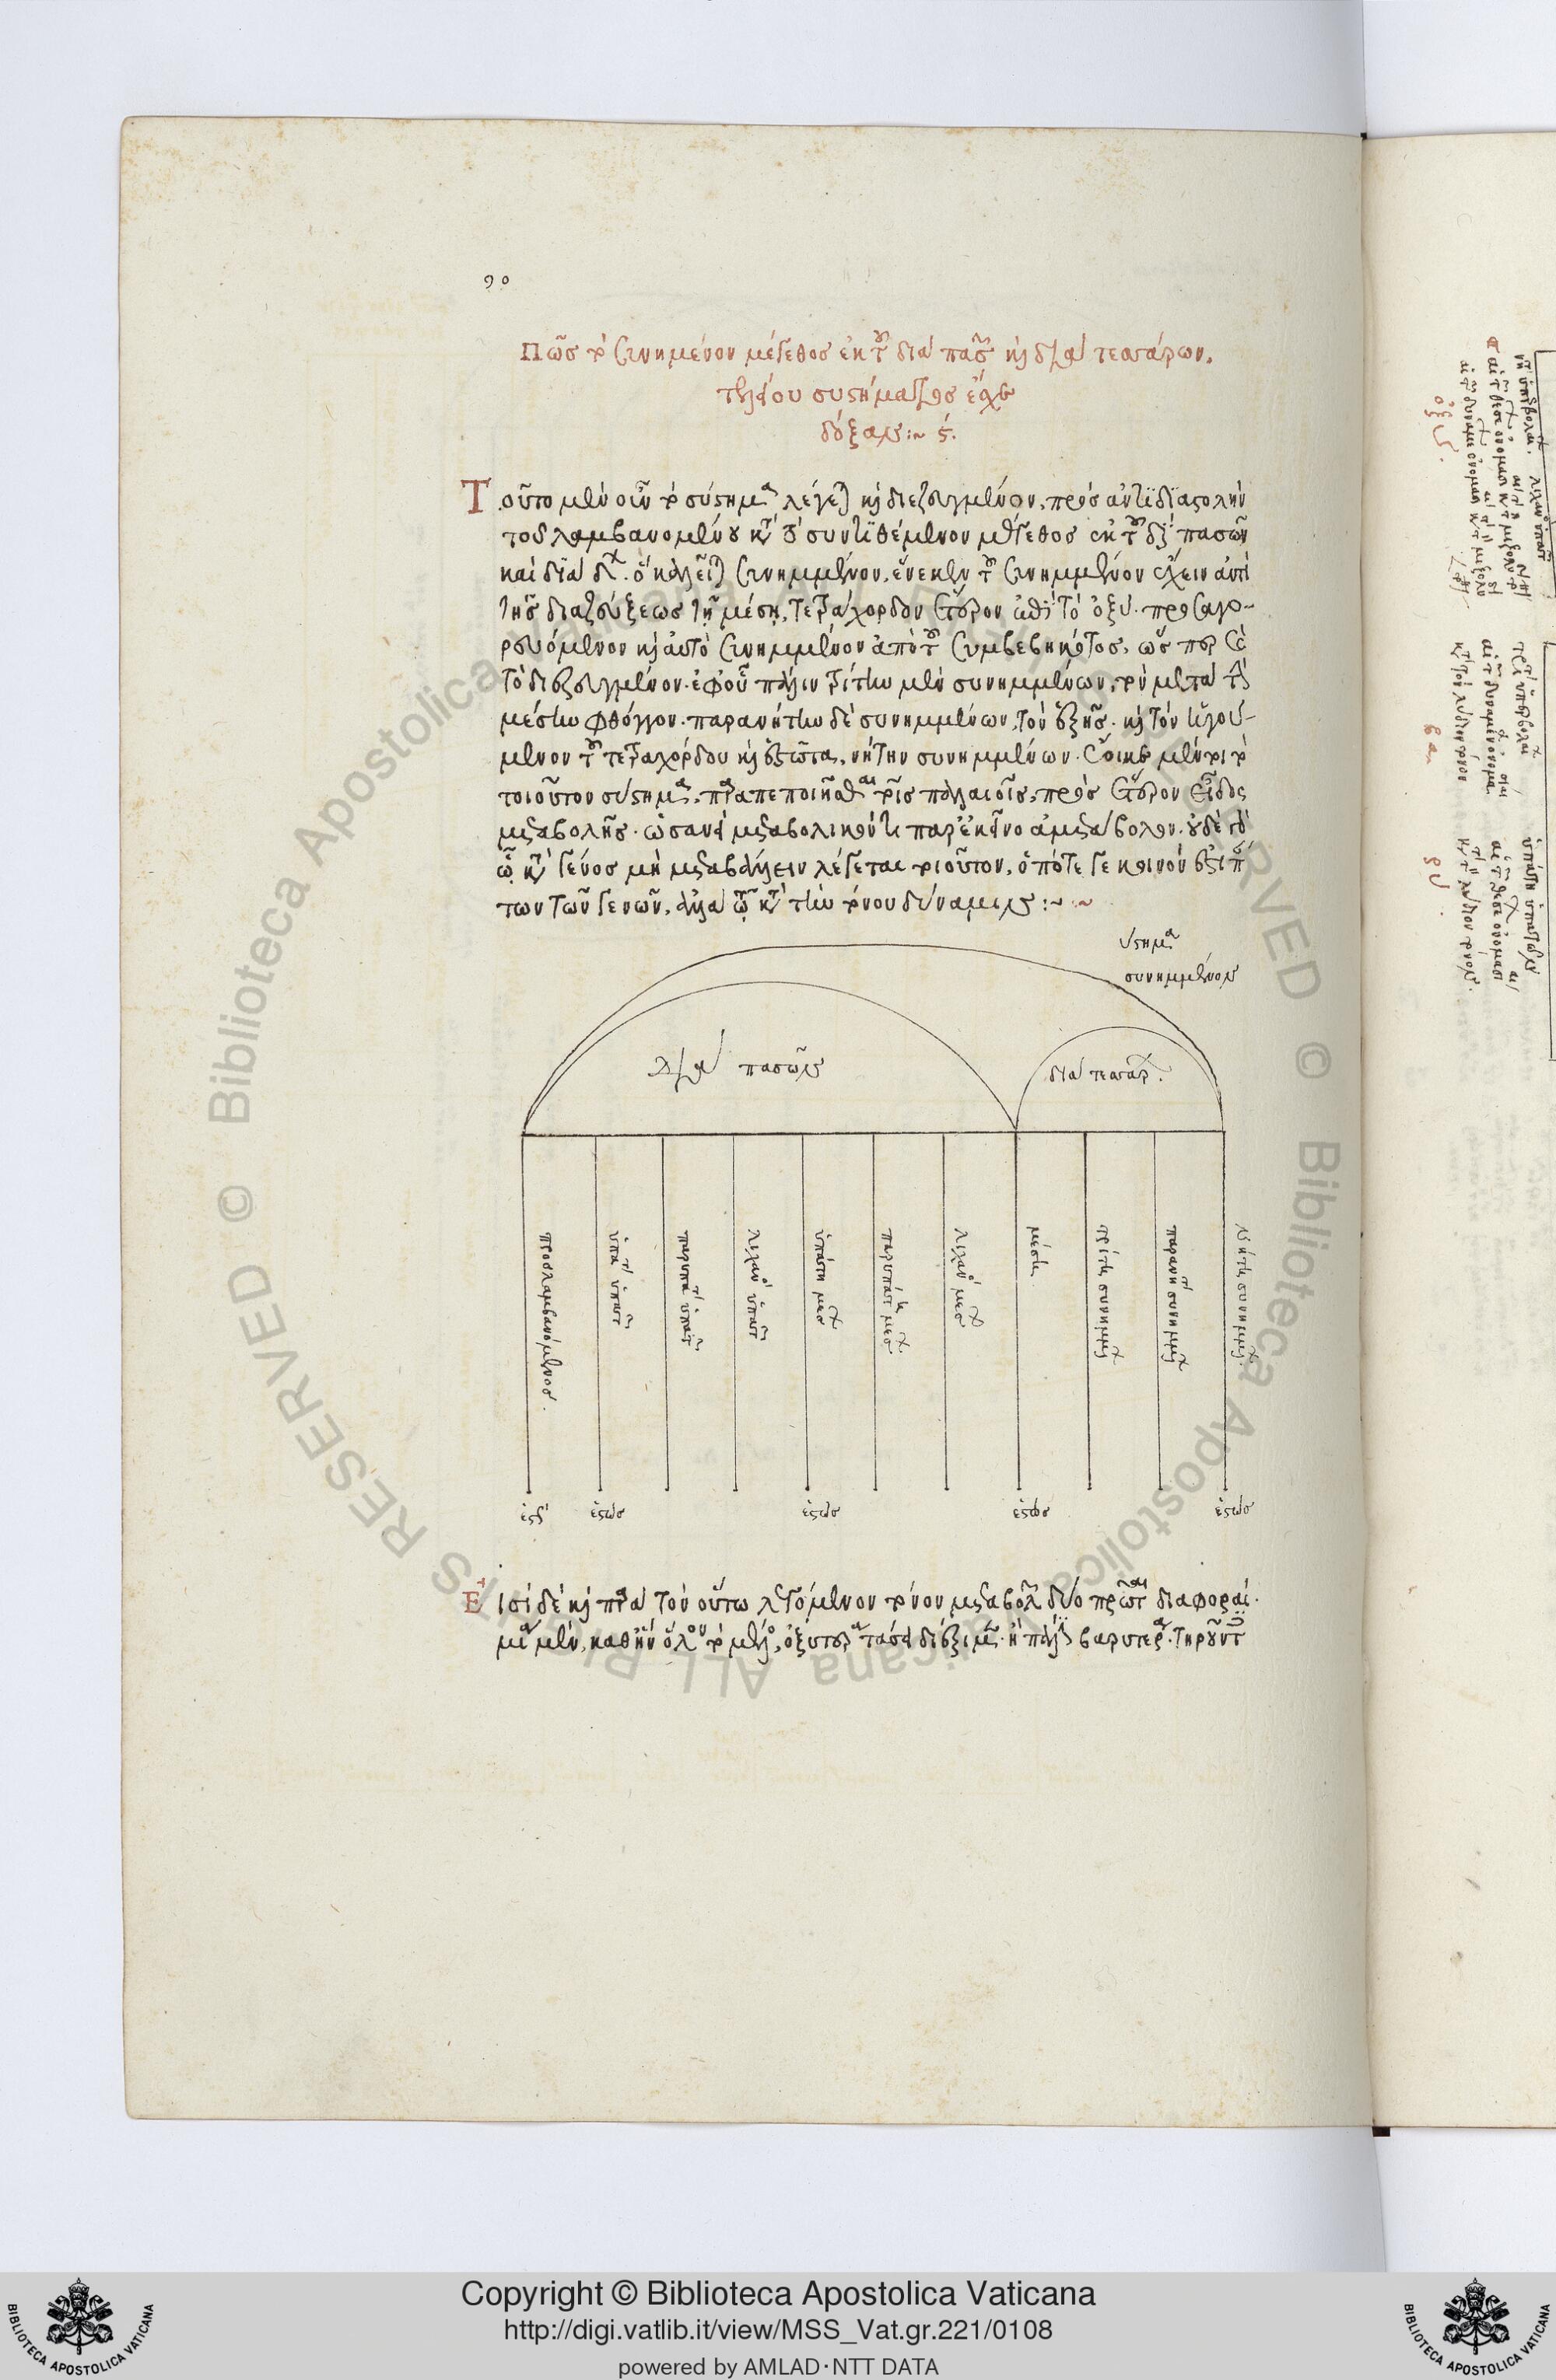 90
Πῶς τὸ συνημένον μέγεθος ἐκ τοῦ διὰ πασῶν καὶ διὰ τεσσάρων.
τελείου συστήματος ἔσχε
δόξαν:~ ς.
Τοῦτο μὲν οὖν τὸ σύστημα λέγεται καὶ διεζευγμένον, πρὸς ἀντιδιαστολὴν
τοῦ λαμβανομένου κατὰ τὸ συντιθέμενον μέγεθος ἐκ τοῦ διὰ πασῶν
καὶ διὰ δ. ὃ καλεῖται συνημμένον, ἕνεκεν τοῦ συνημμένον ἔχειν ἀντὶ
τῆς διαζεύξεως τῇ μέσῃ, τετράχορδον ἕτερον ἐπὶ τὸ ὀξύ. προσαγο-
ρευόμενον καὶ αὐτὸ συνημμένον ἀπὸ τοῦ συμβεβηκότος, ὥσπερ καὶ
τὸ διεζευγμένον. ἐφ' οὗ πάλιν τρίτην μὲν συνημμένων, τὸν μετὰ τὴν
μέσην φθόγγον. παρανήτην δὲ συνημμένων, τὸν ἑξῆς. καὶ τὸν ἡγού-
μενον τοῦ τετραχόρδου καὶ ἑστῶτα, νήτην συνημμένων. ἔοικε μέντοι τὸ
τοιοῦτον σύστημα, παραπεποιῆσθαι τοῖς παλαιοῖς, πρὸς ἕτερον εἶδος
μεταβολῆς. ὡσανεὶ μεταβολικόν τι παρ' ἐκεῖνο ἀμετάβολον. οὐδὲ γὰρ
τῷ κατὰ γένος μὴ μεταβάλλειν λέγεται τοιοῦτον, ὁπότε γε κοινὸν
των τῶν γενῶν, ἀλλὰ τῷ κατὰ τὴν τόνου δύναμιν:~
ύστημα
συνημμένον
Διὰ πασῶν
διὰ τεσσάρ.
προσλαμβανόμενος.
ὑπάτη ὑπατῶν
παρυπάτη ὑπατῶν
λιχανὸς ὑπατῶν
ὑπάτη μέσων
παρυπάτη μέσων
λιχανὸς μέσων
μέση
τρίτη συνημμένων
παρανήτη συνημμένων
νήτη συνημμένων
ἑστώς
ἑστώς
ἑστώς
ἑστώς
Εἰσὶ δὲ καὶ περὶ τὸν οὕτω λεγόμενον τόνον μεταβολῆς δύο πρῶται διαφοραί.
μία μέν, καθ' ἣν ὅλον τὸ μέλος, ὀξυτέρα τάσει διέξιμεν. ἢ πάλιν βαρυτέρα. τηροῦντες
Copyright © Biblioteca Apostolica Vaticana
http://digi.vatlib.it/view/MSS_Vat.gr.221/0108
powered by AMLAD·NTT DATA
BIBLIOTECA APOSTOLICA VATICANA
BIBLIOTECA APOSTOLICA VATICANA